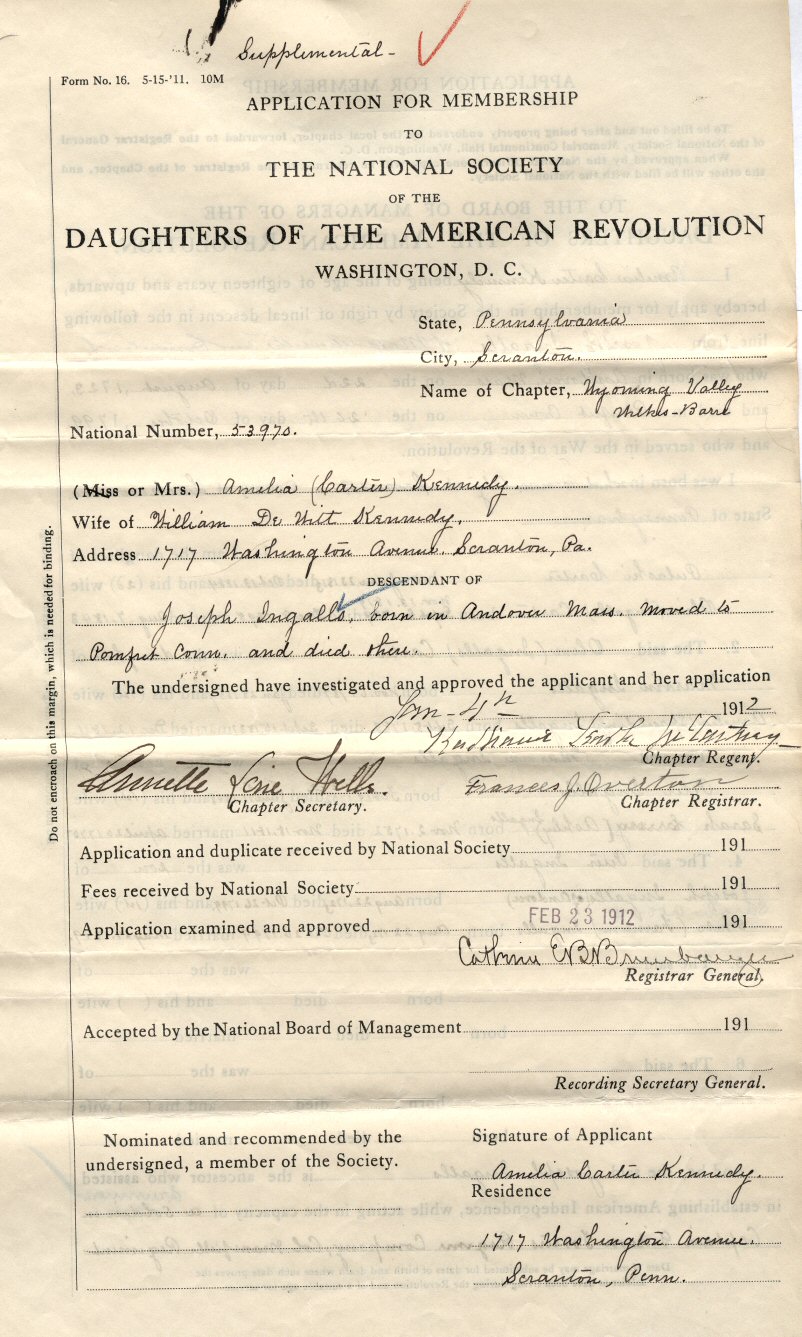 Supplemental-
Form No. 16. 5-15-'11. 10M
APPLICATION FOR MEMBERSHIP
TO
THE NATIONAL SOCIETY
OF THE
DAUGHTERS OF THE AMERICAN REVOLUTION
WASHINGTON, D. C.
State, Pennsylvania
City, Scranton.
Name of Chapter, Wyoming Valley
Wilkes-Barre
National Number, 53970.
(Miss or Mrs.) Amelia (Carter) Kennedy.
Wife of William De Witt Kennedy.
Address 1717 Washington Avenue. Scranton, Pa.
DESCENDANT OF
Joseph Ingalls, born in Andover Mass. moved to
Pomfret Conn. and died there.
The undersigned have investigated and approved the applicant and her application
Jan- 4th 1912
Chapter Regent.
Annette Wells.
Frances J. Overton
Chapter Secretary.
Chapter Registrar.
Application and duplicate received by National Society 191
Fees received by National Society 191
Application examined and approved FEB 23 1912 191
Registrar General.
Accepted by the National Board of Management 191
Recording Secretary General.
Nominated and recommended by the
undersigned, a member of the Society.
Signature of Applicant
Amelia Carter Kennedy.
Residence
1717 Washington Avenue.
Scranton, Penn.
Do not encroach on this margin, which is needed for binding.